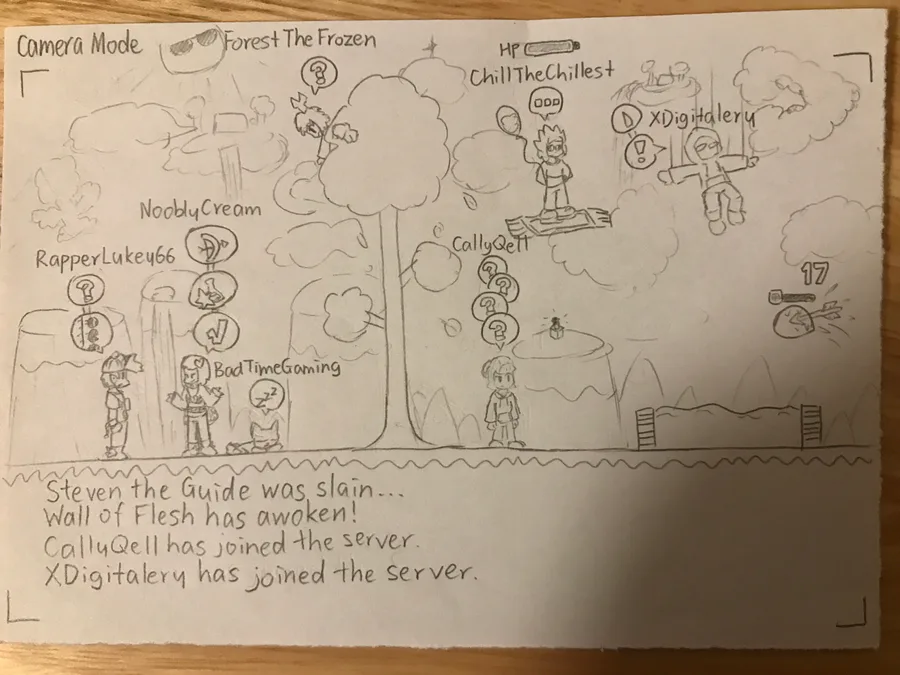 Camera Mode
ForestTheFrozen
?
HP
ChillTheChillest
D XDigitalery
!
NooblyCream
RapperLukey66
?
CallyQell
?
?
?
?
17
BadTimeGaming
zzz
Steven the Guide was slain...
Wall of Flesh has awoken!
CallyQell has joined the server.
XDigitalery has joined the server.